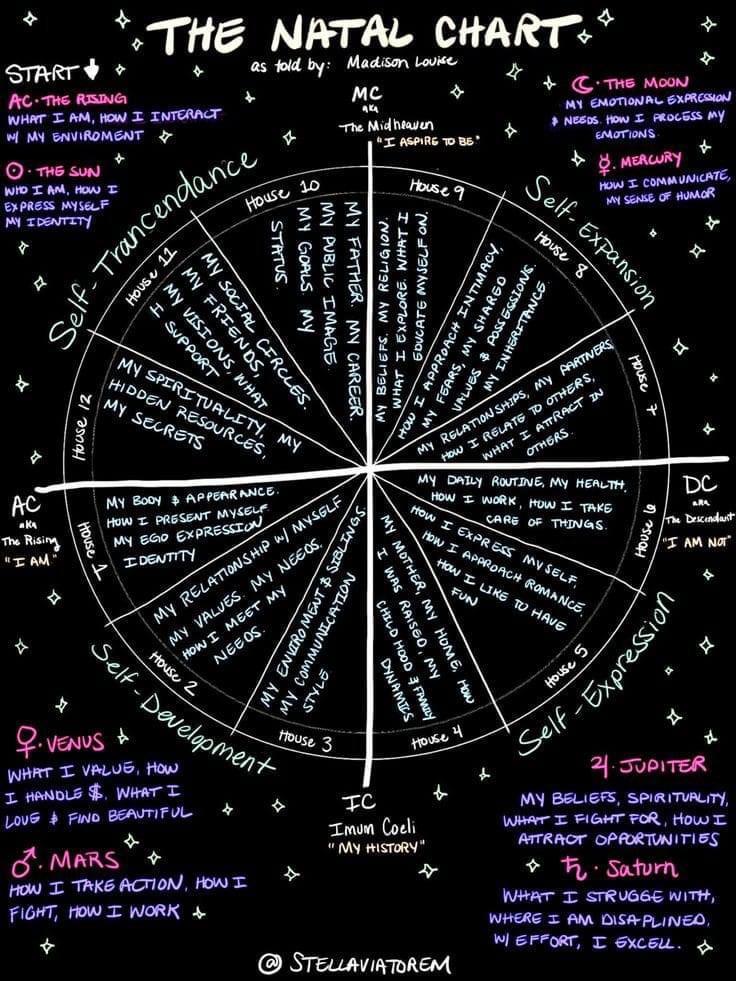 THE NATAL CHART
as told by: Madison Louise
START
AC · THE RISING
WHAT I AM, HOW I INTERACT
W/ MY ENVIROMENT
☉ · THE SUN
WHO I AM, HOW I
EXPRESS MYSELF
MY IDENTITY
MC
aka
The Midheaven
"I ASPIRE TO BE"
☾ · THE MOON
MY EMOTIONAL EXPRESSION
& NEEDS. HOW I PROCESS MY
EMOTIONS.
☿ · MERCURY
HOW I COMMUNICATE,
MY SENSE OF HUMOR
Self-Trancendance
House 10
MY FATHER. MY CAREER.
MY PUBLIC IMAGE.
MY GOALS. MY
STATUS.
House 11
MY SOCIAL CIRCLES.
MY FRIENDS,
MY VISIONS, WHAT
I SUPPORT
House 12
MY SPIRITUALITY, MY
HIDDEN RESOURCES,
MY SECRETS
Self-Expansion
House 9
MY BELIEFS. MY RELIGION.
WHAT I EXPLORE. WHAT I
EDUCATE MYSELF ON.
House 8
HOW I APPROACH INTIMACY.
MY FEARS, MY SHARED
VALUES & POSSESSIONS.
MY INHERITANCE
House 7
MY RELATIONSHIPS, MY PARTNERS
HOW I RELATE TO OTHERS,
WHAT I ATTRACT IN
OTHERS.
AC
aka
The Rising
"I AM"
House 1
MY BODY & APPEARANCE.
HOW I PRESENT MYSELF
MY EGO EXPRESSION
IDENTITY
House 2
MY RELATIONSHIP W/ MYSELF
MY VALUES. MY NEEDS.
HOW I MEET MY
NEEDS.
House 3
MY ENVIROMENT & SIBLINGS
MY COMMUNICATION
STYLE
Self-Development
DC
aka
The Descendant
"I AM NOT"
House 6
MY DAILY ROUTINE, MY HEALTH,
HOW I WORK, HOW I TAKE
CARE OF THINGS.
House 5
HOW I EXPRESS MYSELF,
HOW I APPROACH ROMANCE.
HOW I LIKE TO HAVE
FUN
House 4
MY MOTHER, MY HOME, HOW
I WAS RAISED, MY
CHILDHOOD & FAMILY
DYNAMICS
Self-Expression
♀ · VENUS
WHAT I VALUE, HOW
I HANDLE $, WHAT I
LOVE & FIND BEAUTIFUL
♂ · MARS
HOW I TAKE ACTION, HOW I
FIGHT, HOW I WORK
IC
Imum Coeli
"MY HISTORY"
♃ · JUPITER
MY BELIEFS, SPIRITUALITY,
WHAT I FIGHT FOR, HOW I
ATTRACT OPPORTUNITIES
♄ · Saturn
WHAT I STRUGGE WITH,
WHERE I AM DISAPLINED,
W/ EFFORT, I EXCELL.
@ STELLAVIATOREM